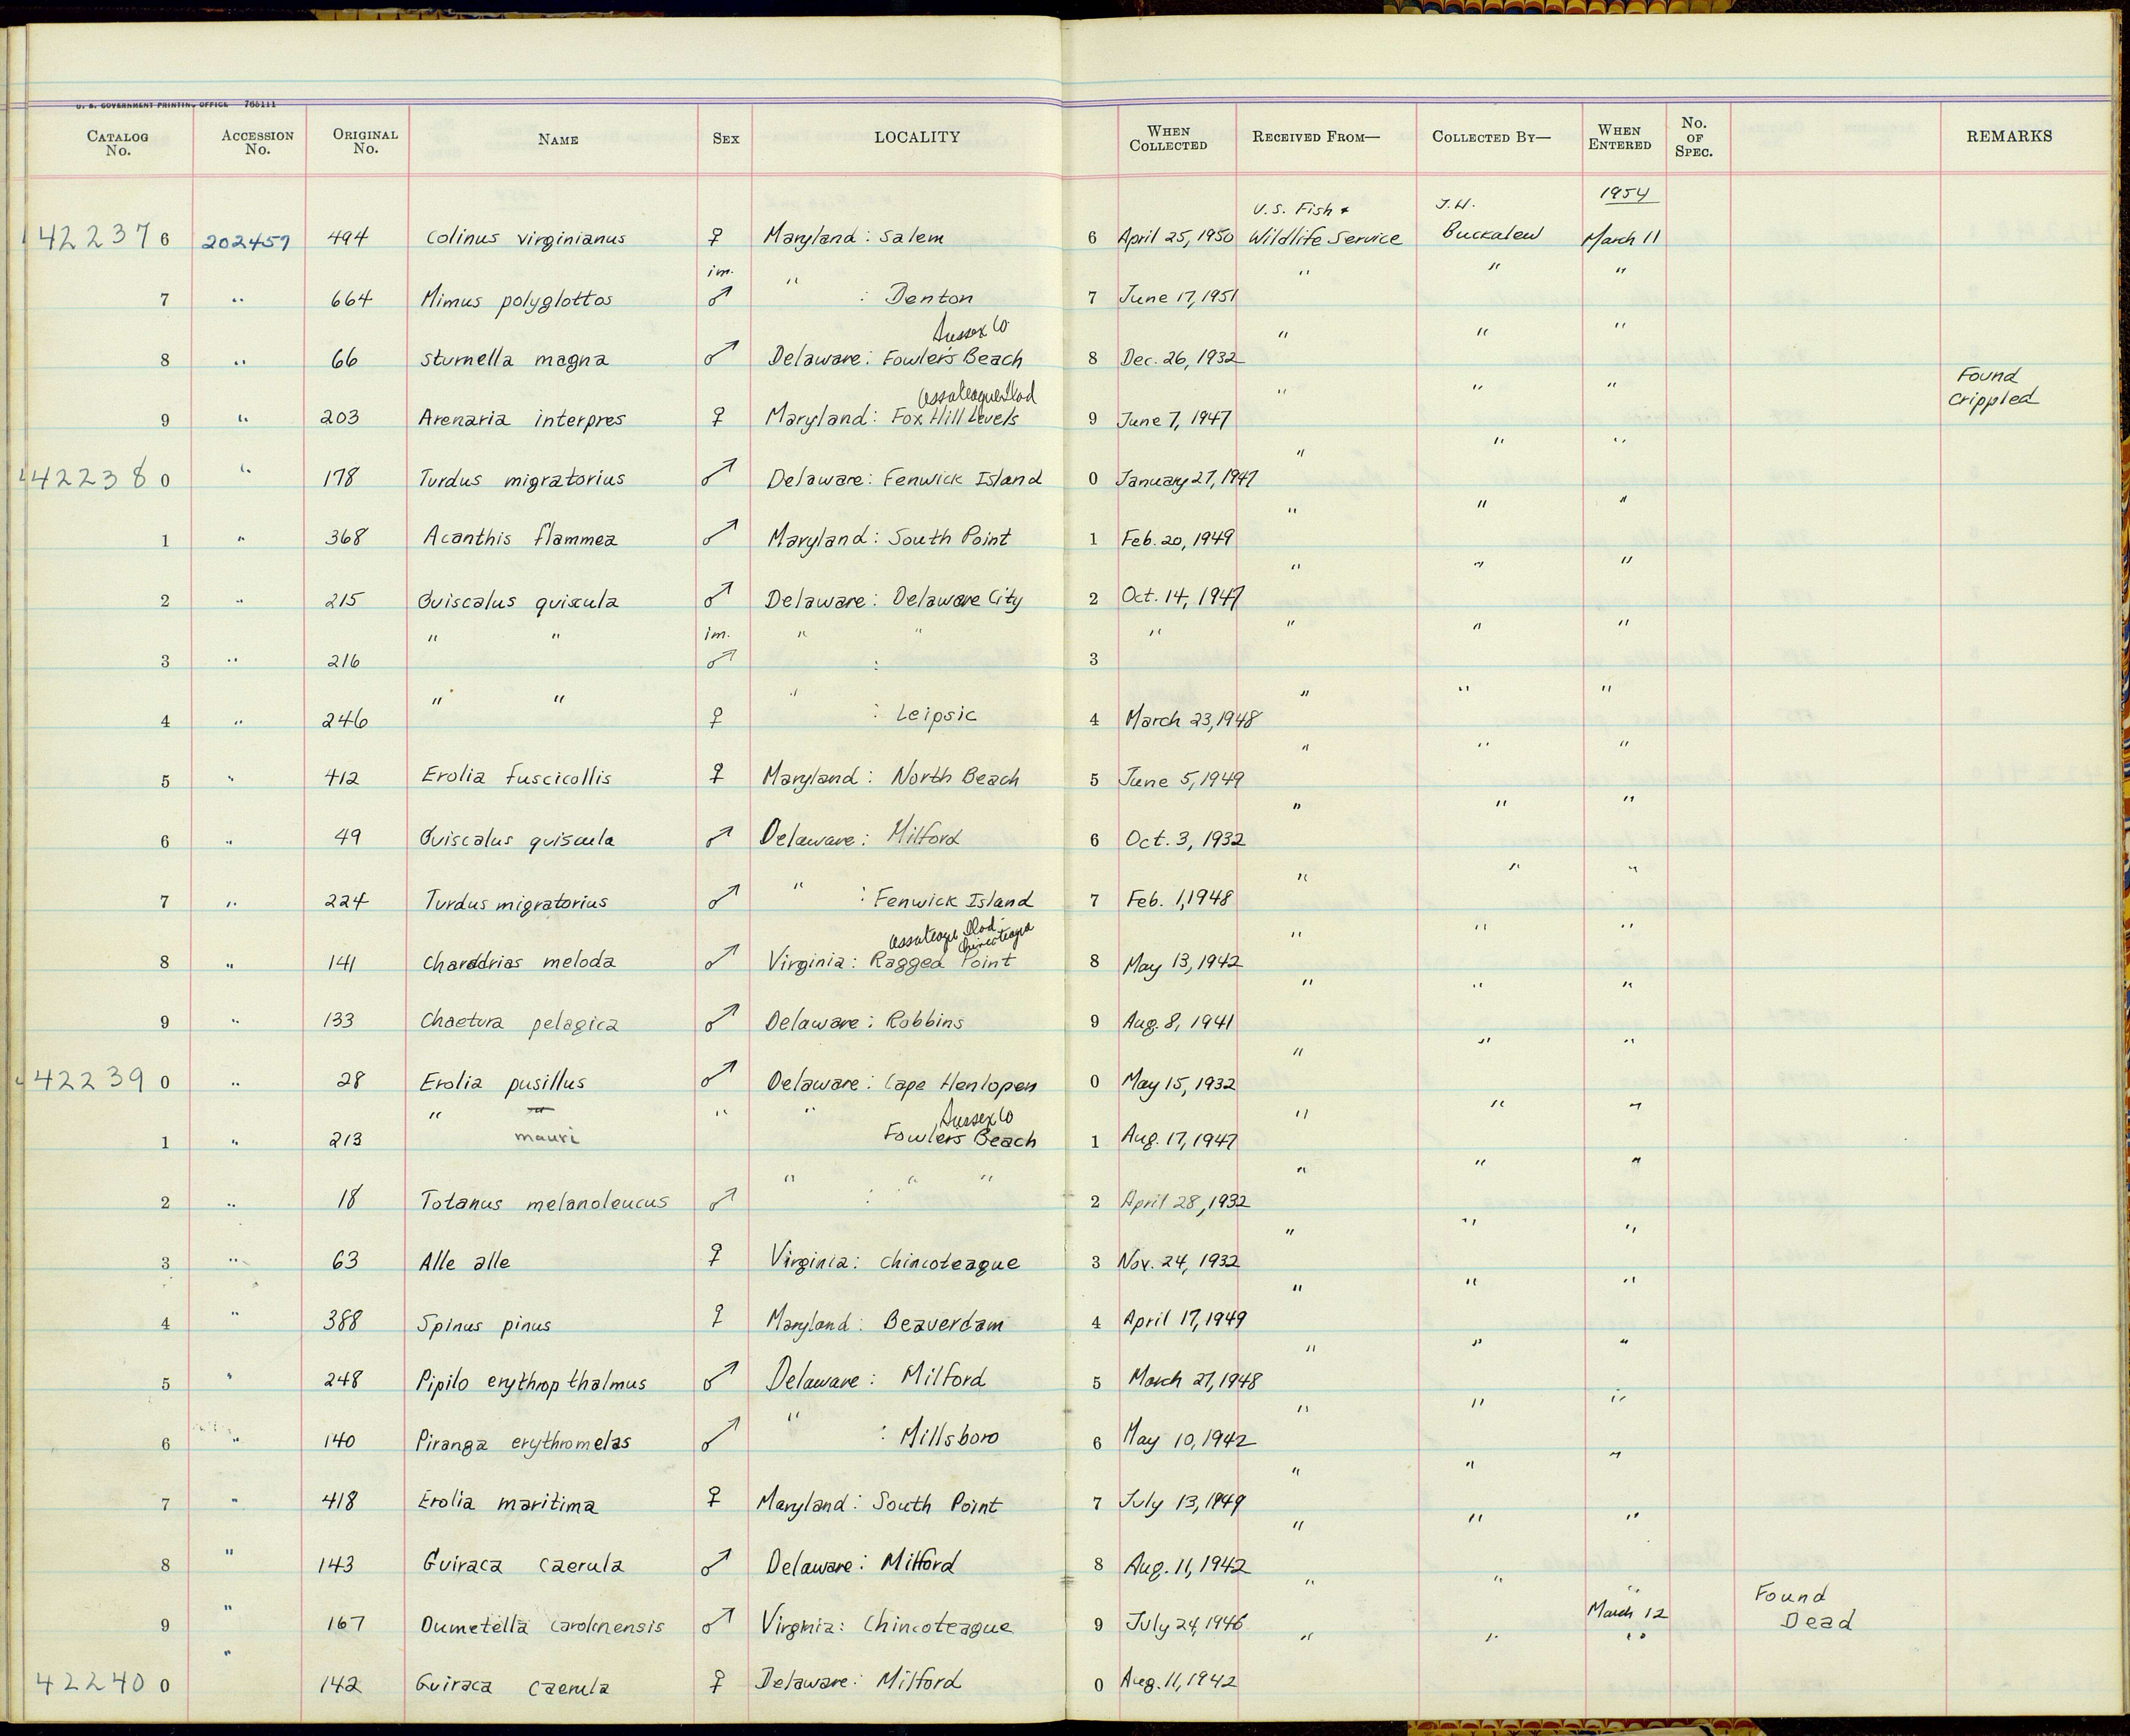 U. S. GOVERNMENT PRINTING OFFICE 765111
CATALOG No. ACCESSION No. ORIGINAL No. NAME SEX LOCALITY WHEN COLLECTED RECEIVED FROM— COLLECTED BY— WHEN ENTERED No. OF SPEC. REMARKS
1954
U.S. Fish & J.H.
422376 202457 494 Colinus virginianus ♀ Maryland: Salem 6 April 25, 1950 Wildlife Service Buckalew March 11
im. " " " "
7 " 664 Mimus polyglottos ♂ : Denton 7 June 17, 1951
Sussex Co " " "
8 " 66 Sturnella magna ♂ Delaware: Fowlers Beach 8 Dec. 26, 1932
Assateague Isld " " " Found crippled
9 " 203 Arenaria interpres ♀ Maryland: Fox Hill Levels 9 June 7, 1947
" " "
422380 " 178 Turdus migratorius ♂ Delaware: Fenwick Island 0 January 27, 1947
" " "
1 " 368 Acanthis flammea ♂ Maryland: South Point 1 Feb. 20, 1949
" " "
2 " 215 Quiscalus quiscula ♂ Delaware: Delaware City 2 Oct. 14, 1947
" " im. " " " " " "
3 " 216 ♂ : 3
" " " " " "
4 " 246 ♀ : Leipsic 4 March 23, 1948
" " "
5 " 412 Erolia fuscicollis ♀ Maryland: North Beach 5 June 5, 1949
" " "
6 " 49 Quiscalus quiscula ♂ Delaware: Milford 6 Oct. 3, 1932
" " " "
7 " 224 Turdus migratorius ♂ : Fenwick Island 7 Feb. 1, 1948
Assateague Isld Chincoteague " " "
8 " 141 Charadrias meloda ♂ Virginia: Ragged Point 8 May 13, 1942
" " "
9 " 133 Chaetura pelagica ♂ Delaware: Robbins 9 Aug. 8, 1941
" " "
422390 " 28 Erolia pusillus ♂ Delaware: Cape Henlopen 0 May 15, 1932
" " " " Sussex Co " " "
1 " 213 mauri Fowlers Beach 1 Aug. 17, 1947
" " " " " "
2 " 18 Totanus melanoleucus ♂ : 2 April 28, 1932
" " "
3 " 63 Alle alle ♀ Virginia: Chincoteague 3 Nov. 24, 1932
" " "
4 " 388 Spinus pinus ♀ Maryland: Beaverdam 4 April 17, 1949
" " "
5 " 248 Pipilo erythropthalmus ♂ Delaware: Milford 5 March 27, 1948
" " " "
6 " 140 Piranga erythromelas ♂ : Millsboro 6 May 10, 1942
" " "
7 " 418 Erolia maritima ♀ Maryland: South Point 7 July 13, 1949
" " "
8 " 143 Guiraca caerula ♂ Delaware: Milford 8 Aug. 11, 1942
" " " Found
9 " 167 Dumetella carolinensis ♂ Virginia: Chincoteague 9 July 24, 1946 March 12 Dead
" " " "
422400 142 Guiraca caerula ♀ Delaware: Milford 0 Aug. 11, 1942